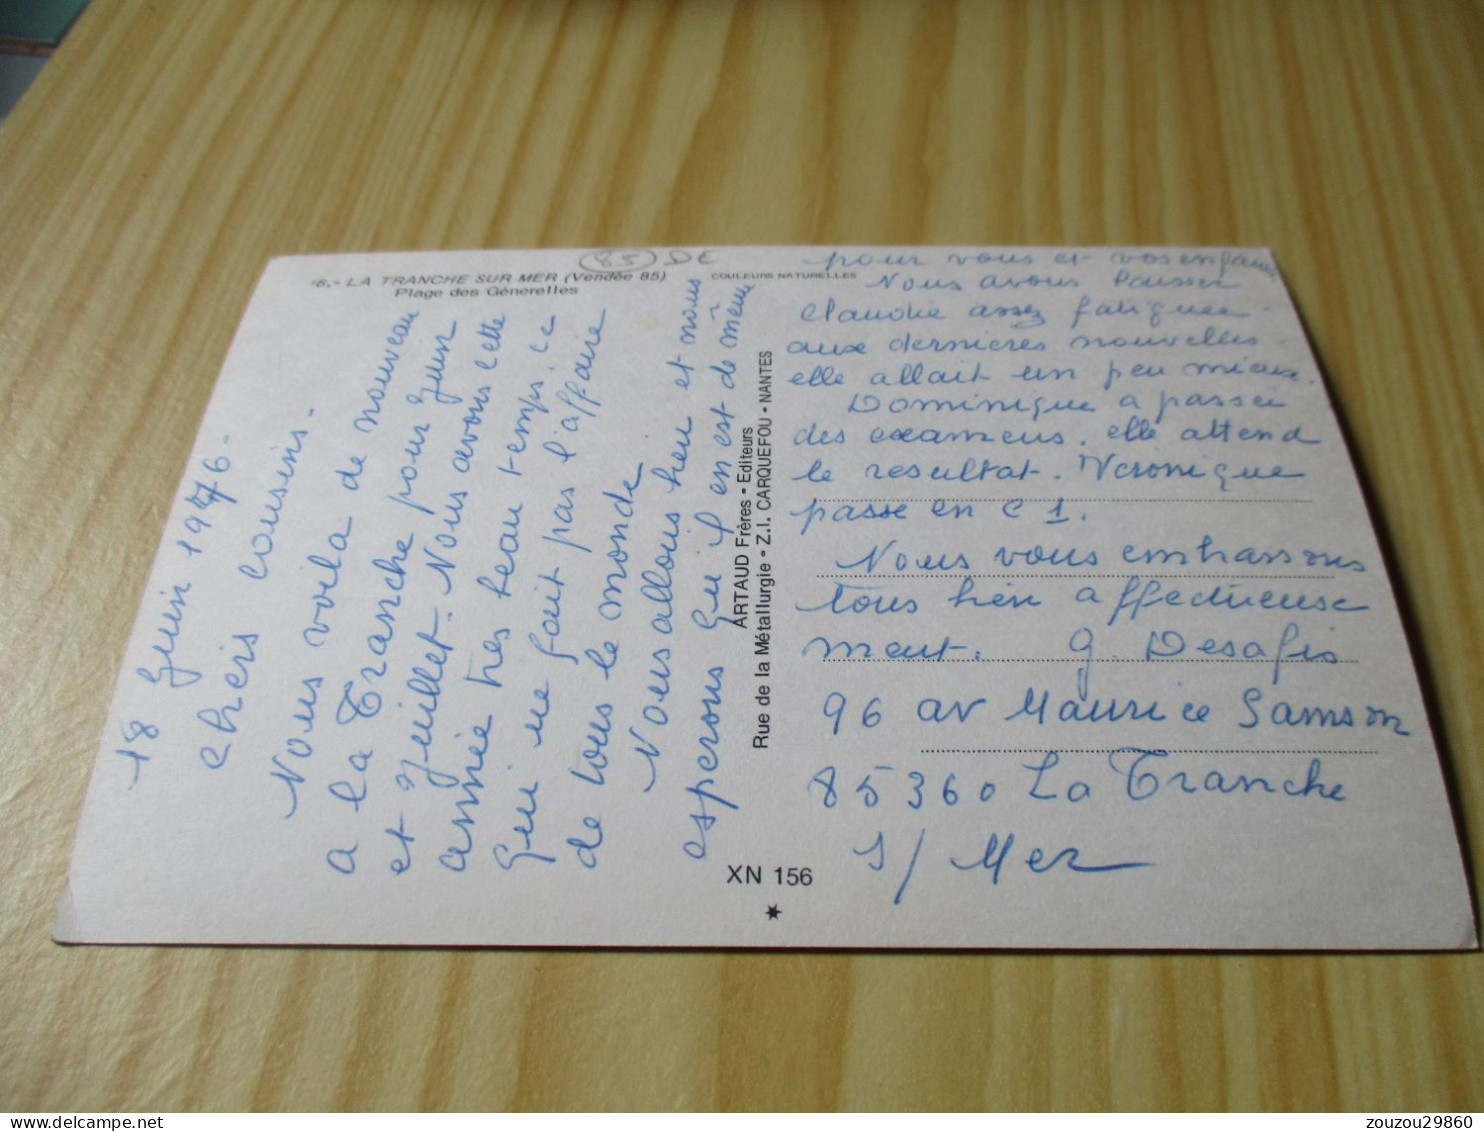 (85) DE
76.- LA TRANCHE SUR MER (Vendée 85)
Plage des Génerelles
COULEURS NATURELLES
18 Juin 1976-
chers cousins-
Nous voila de nouveau
a la Tranche pour Juin
et Juillet. Nous avons cette
année tres beau temps. ce
qui ne fait pas l'affaire
de tous le monde
Nous allons bien et nous
esperons qu'il en est de même
ARTAUD Frères - Editeurs
Rue de la Métallurgie - Z.I. CARQUEFOU - NANTES
pour vous et vos enfants
Nous avons laisser
Claudie assez fatiguée.
aux dernieres nouvelles.
elle allait un peu mieux.
Dominique a passei
des examens. elle attend
le resultat. Veronique
passe en C 1.
Nous vous embrassons
tous bien affectueuse
ment. G. Desafis
96 av Maurice Samson
85360 La Tranche
S/ Mer
XN 156
zouzou29860